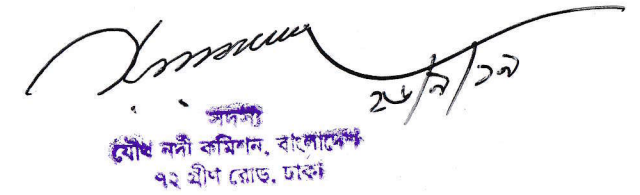 ২৬/৯/১৯
সদস্য
যৌথ নদী কমিশন, বাংলাদেশ
৭২ গ্রীণ রোড, ঢাকা